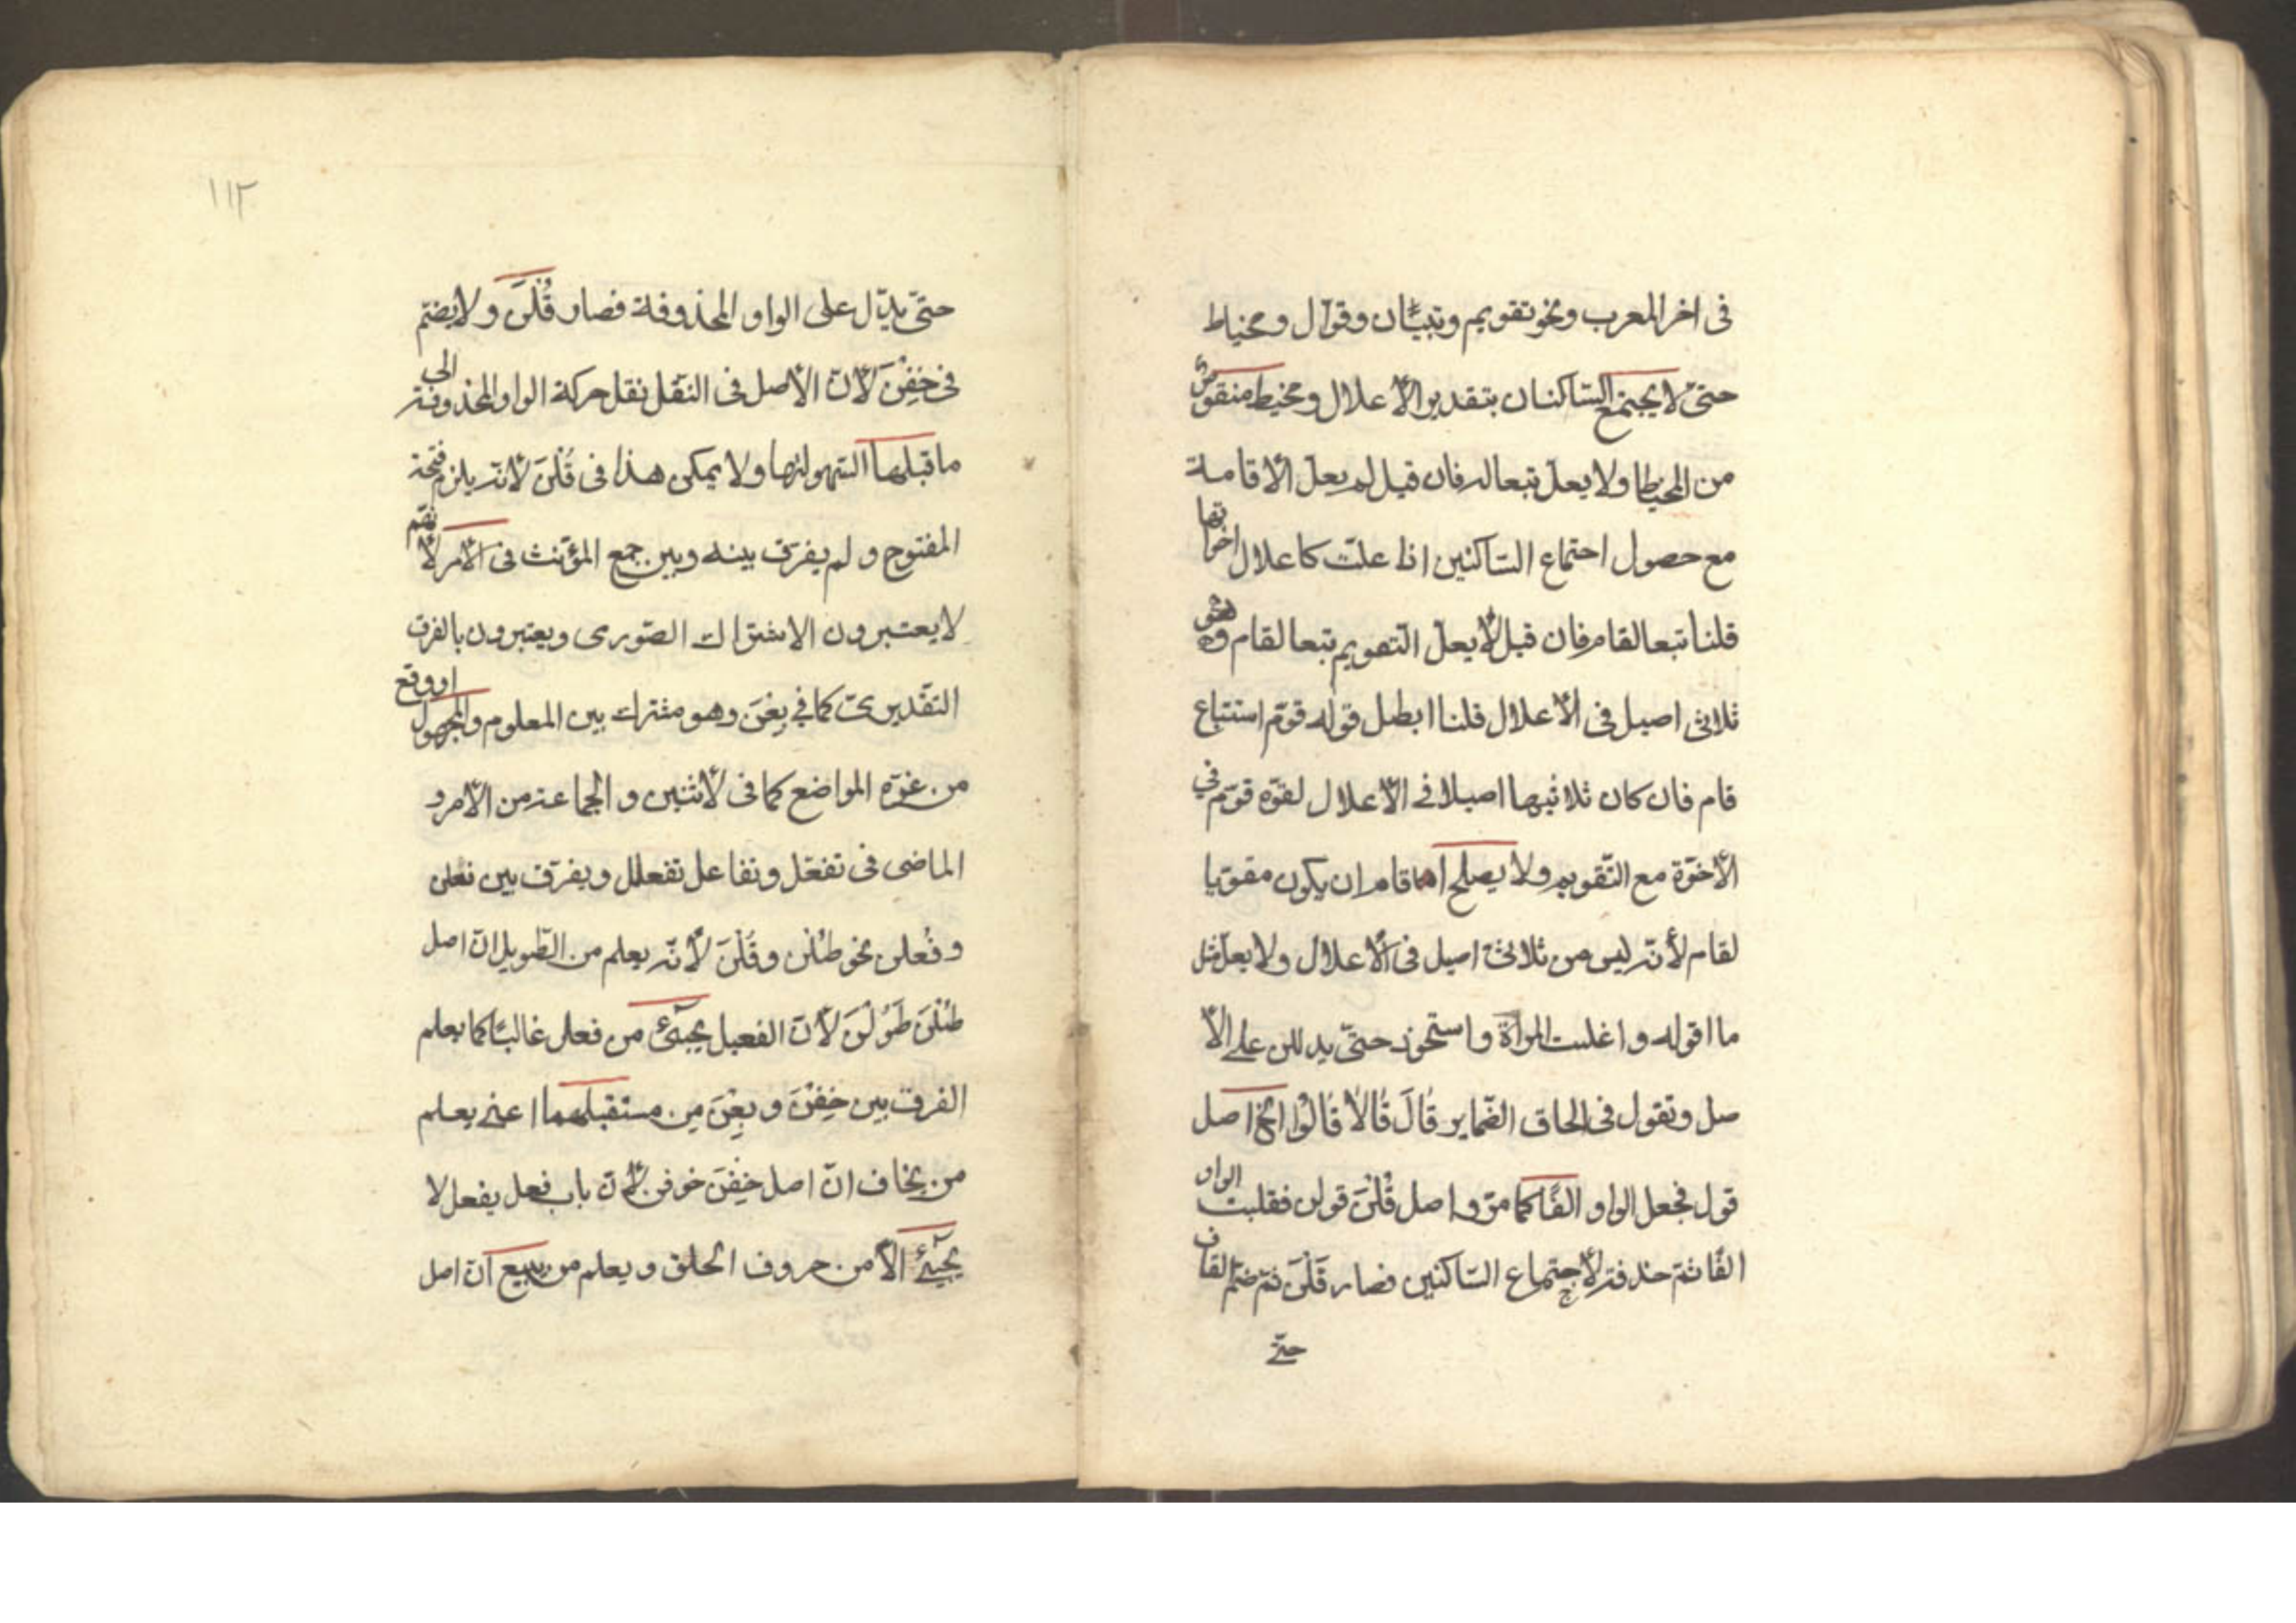 فى اخر المعرب ونحو تقويم وتبيان وقوّال ومخياط
حتىّ لا يجتمع السّاكنان بتقدير الأعلال ومخيط منقوص
من المخياط ولا يعلّ تبعا له فان قيل لم يعلّ الأقامة
مع حصول اجتماع السّاكنين اذا علّت كاعلال اخواتها
قلنا تبعا لقام فان قيل لا يعلّ التقويم تبعا لقام وهو
ثلاثى اصيل فى الأعلال قلنا ابطل قوله قوّم استتباع
قام فان كان ثلاثيها اصيلا فى الأعلال لقوّه قوّم فى
الأخوّة مع التّقويم ولا يصلح اما قام ان يكون مقويا
لقام لأنّه ليس من ثلاثىّ اصيل فى الأعلال ولا يعلّ مثل
ما اقوله واغليت المرأة واستحوذ حتىّ يدللن على الأ
صل وتقول فى الحاق الضّماير قَالَ قَالَا قَالُوا الخ اصل
قول فجعل الواو الفًا كما مرّ واصل قُلْنَ قولن فقلبت الواو
الفًا ثمّ حذفت لأجتماع السّاكنين فصار قَلْنَ ثمّ ضمّ القاف
حتّى
١١٢
حتىّ يدلّ على الواو المحذوفة فصار قُلْنَ ولا يضمّ
فى خِفْنَ لأنّ الأصل فى النّقل نقل حركة الواو المحذوفة الى
ما قبلها السّهولتها ولا يمكن هذا فى قُلْنَ لأنّه يلزم فتحة
المفتوح ولم يفرّق بينه وبين جمع المؤنّث فى الأمر لأنّهم
لا يعتبرون الاشتراك الصّورى ويعتبرون بالفرق
التقّديرىّ كما فى بِعْنَ وهو مشترك بين المعلوم والمجهول او وقع
من غرّة المواضع كما فى لأثنين والجماعة من الأمر و
الماضى فى تفعّل وتفاعل تفعلل ويفرّق بين فعلن
وفُعلن نحو طُلْن وقُلْنَ لأنّه يعلم من الطّويل انّ اصل
طُلْنَ طَوُلْنَ لأنّ الفعيل يجىئ من فعل غالبًا كما يعلم
الفرق بين خِفْنَ وبِعْنَ من مستقبلهما اعنى يعلم
من يخاف انّ اصل خِفْنَ خوفن لأنّ باب فعل يفعل لا
يجىئ الاّ من حروف الحلق ويعلم من يبيع انّ اصل